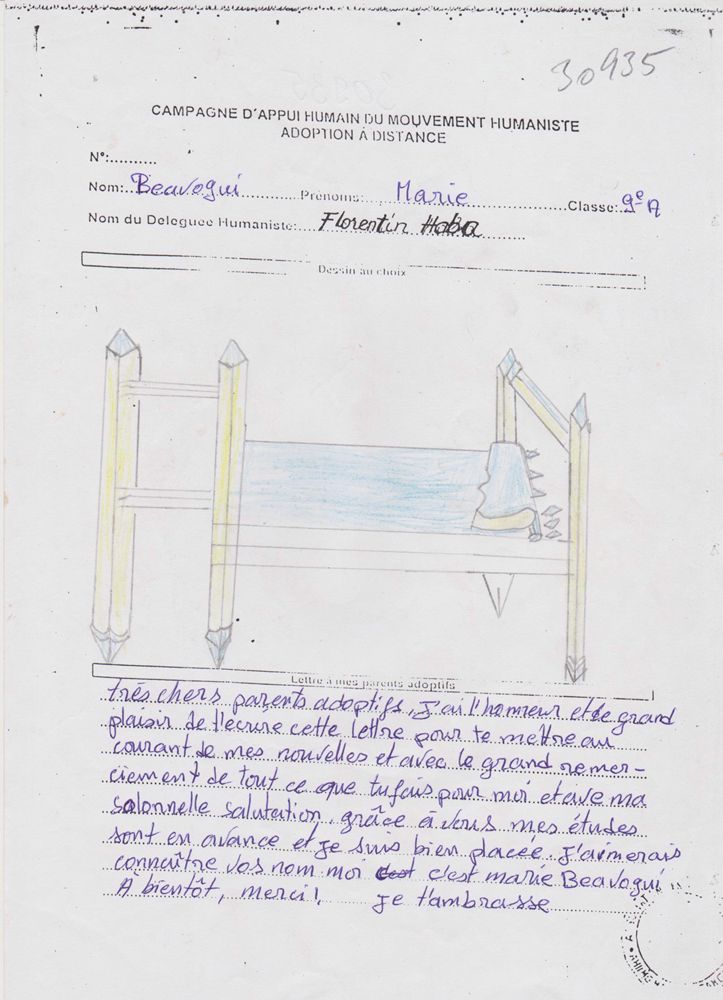 30935
CAMPAGNE D'APPUI HUMAIN DU MOUVEMENT HUMANISTE
ADOPTION À DISTANCE
N°:..........
Nom:..Beavogui..............Prénoms:......Marie....................Classe:..9e A
Nom du Deleguee Humaniste:....Florentin Haba..........
Dessin au choix
Lettre à mes parents adoptifs
très chers parents adoptifs, j'ai l'honneur et le grand
plaisir de l'ecrire cette lettre pour te mettre au
courant de mes nouvelles et avec le grand remer-
ciement de tout ce que tu fais pour moi et ave ma
solonnelle salutation, grâce à vous mes études
sont en avance et je suis bien placée. J'aimerais
connaître vos nom moi c'est c'est marie Beavogui
A bientôt, merci! Je t'ambrasse